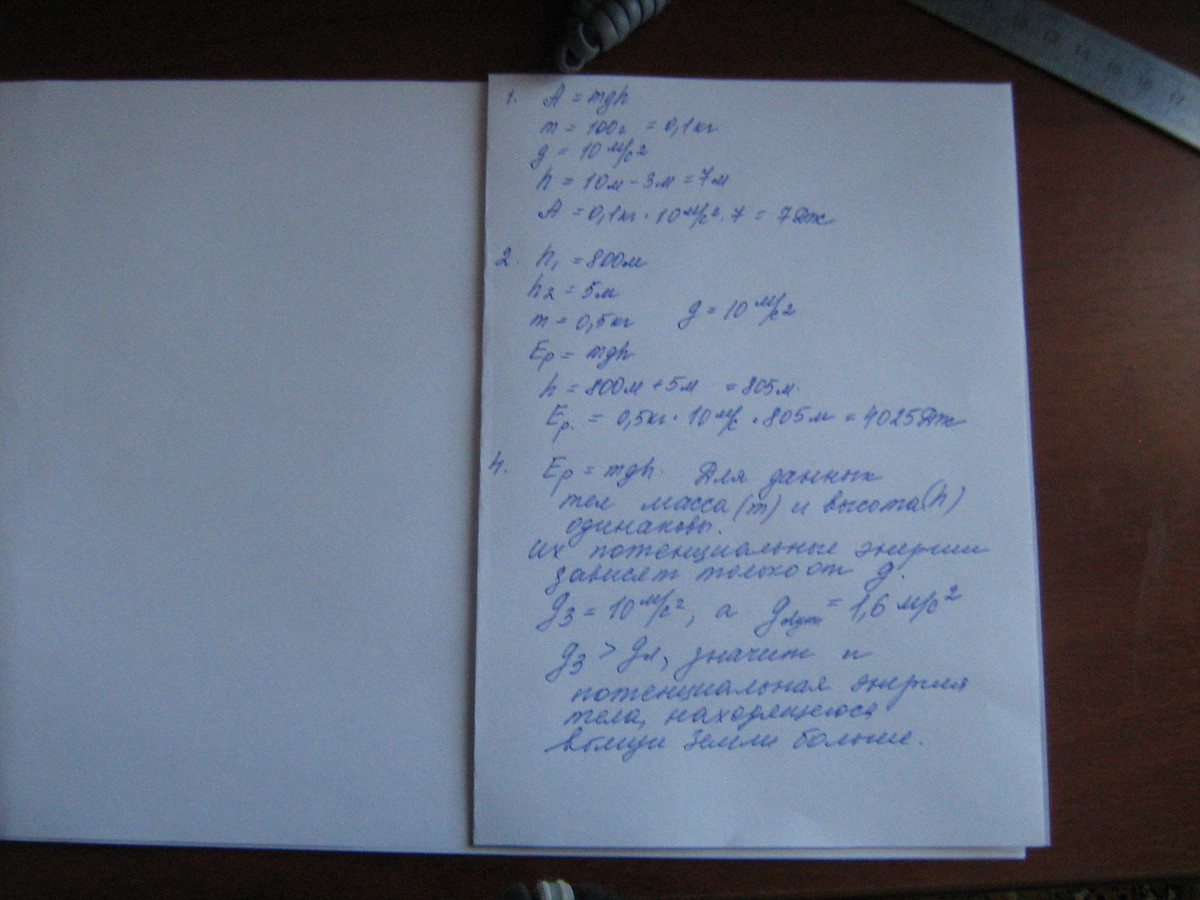 1. A = mgh
m = 100г = 0,1кг
g = 10 м/с²
h = 10м - 3м = 7м
A = 0,1кг · 10 м/с² · 7 = 7Дж
2. h₁ = 800м
h₂ = 5м
m = 0,5кг g = 10 м/с²
Eр = mgh
h = 800м + 5м = 805м.
Eр. = 0,5кг · 10 м/с · 805м = 4025Дж
4. Eр = mgh. Для данных
тел масса (m) и высота (h)
одинаковы.
Их потенциальные энергии
зависят только от g.
gз = 10 м/с², а gлун = 1,6 м/с²
gз > gл, значит и
потенциальная энергия
тела, находящегося
вблизи Земли больше.